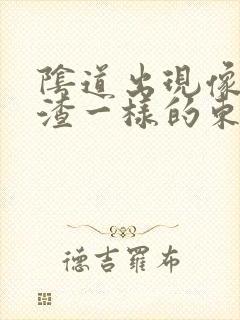 陰道出現像
渣一樣的東
德吉羅布